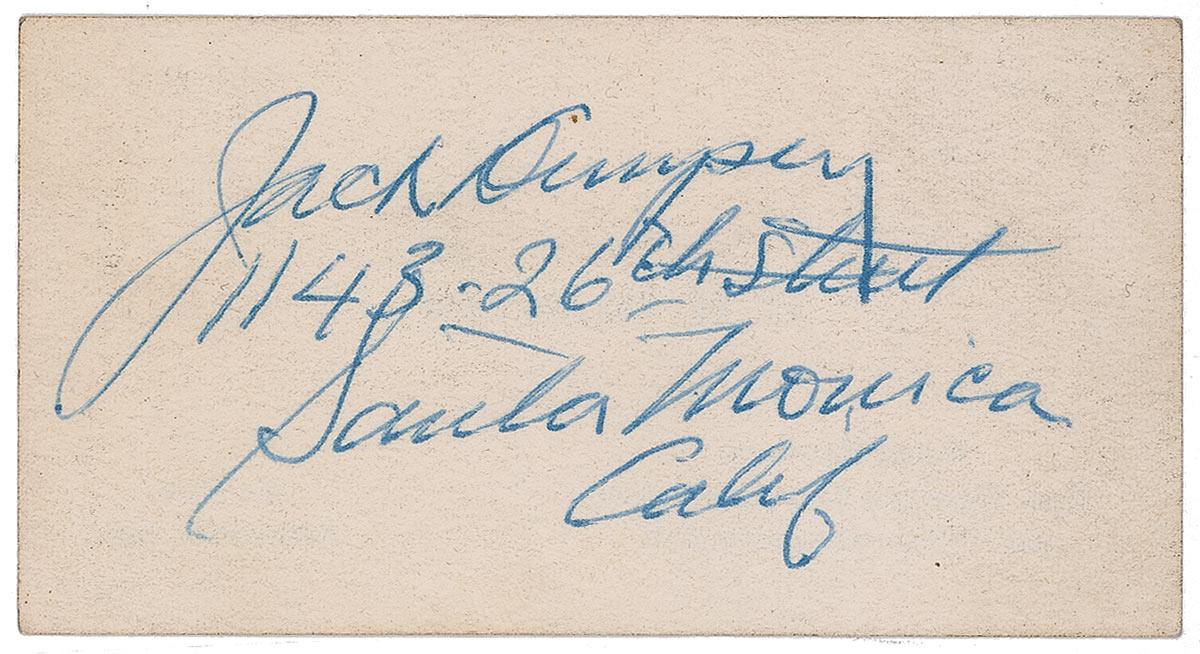 Jack Dempsey
1143-26th Street
Santa Monica
Calif